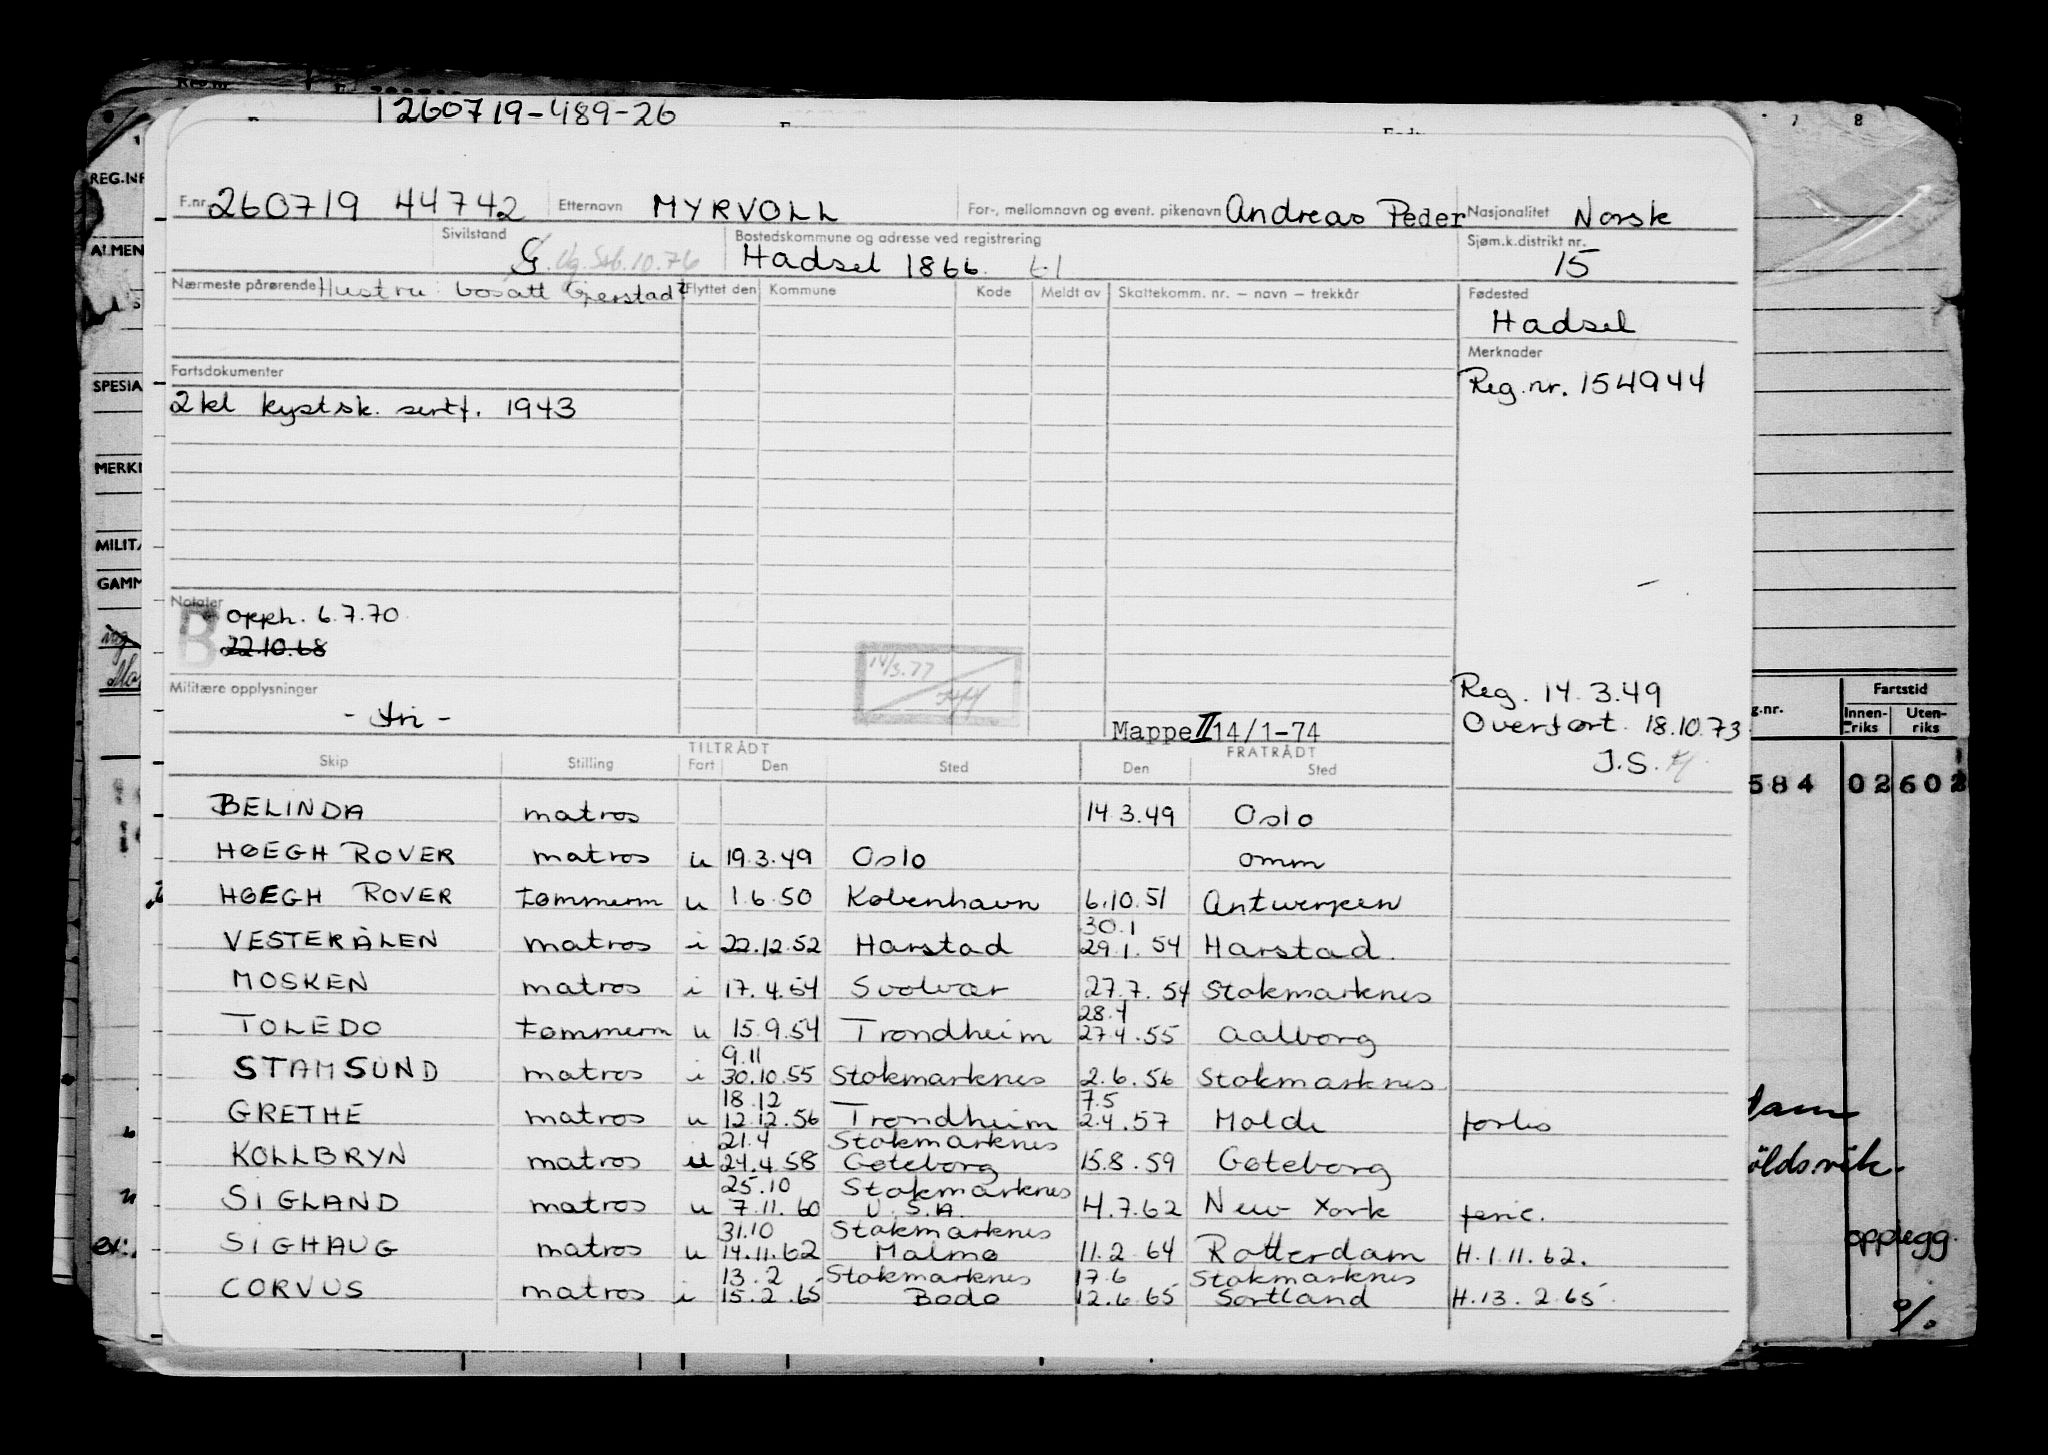 1260719-489-26
F.nr. 260719 44742 Etternavn MYRVOLL For-, mellomnavn og event. pikenavn Andreas Peder Nasjonalitet Norsk
Sivilstand G. Bostedskommune og adresse ved registrering Hadsel 1866 Sjøm.k.distrikt nr. 15
Nærmeste pårørende Hustru bosatt Gjerstad Flyttet den Kommune Kode Meldt av Skattekomm. nr. – navn – trekkår Fødested
Hadsel
Merknader
Fartsdokumenter
Reg.nr. 154944
2kl kystsk. sertf. 1943
Notater
B opph. 6.7.70
22.10.68
14/3.77
Militære opplysninger
- fri -
Reg. 14.3.49
Overført. 18.10.73
J.S.
Mappe II 14/1-74
TILTRÅDT FRATRÅDT
Skip Stilling Fart Den Sted Den Sted
BELINDA matros 14.3.49 Oslo
HØEGH ROVER matros u 19.3.49 Oslo omm
HØEGH ROVER tømmerm u 1.6.50 København 6.10.51 Antwerpen
30.1
VESTERÅLEN matros i 22.12.52 Harstad 29.1.54 Harstad.
MOSKEN matros i 17.4.54 Svolvær 27.7.54 Stokmarknes
28.4
TOLEDO tømmerm u 15.9.54 Trondheim 27.4.55 Aalborg
9.11
STAMSUND matros i 30.10.55 Stokmarknes 2.6.56 Stokmarknes
18.12 7.5
GRETHE matros u 12.12.56 Trondheim 2.4.57 Molde forlis
21.4 Stokmarknes
KOLLBRYN matros u 24.4.58 Gøteborg 15.8.59 Gøteborg
25.10 Stokmarknes
SIGLAND matros u 7.11.60 U.S.A. 4.7.62 New York ferie.
31.10 Stokmarknes
SIGHAUG matros u 14.11.62 Malmø 11.2.64 Rotterdam H.1.11.62.
13.2 Stokmarknes 17.6 Stokmarknes
CORVUS matros i 15.2.65 Bodø 12.6.65 Sortland H.13.2.65.
REG.NR
ALMEN
SPESIA
MERK
MILIT
GAMM
7 8
g.nr. Fartstid
Innenriks Utenriks
584 02 602
öldsvik.
opplegg.
%.